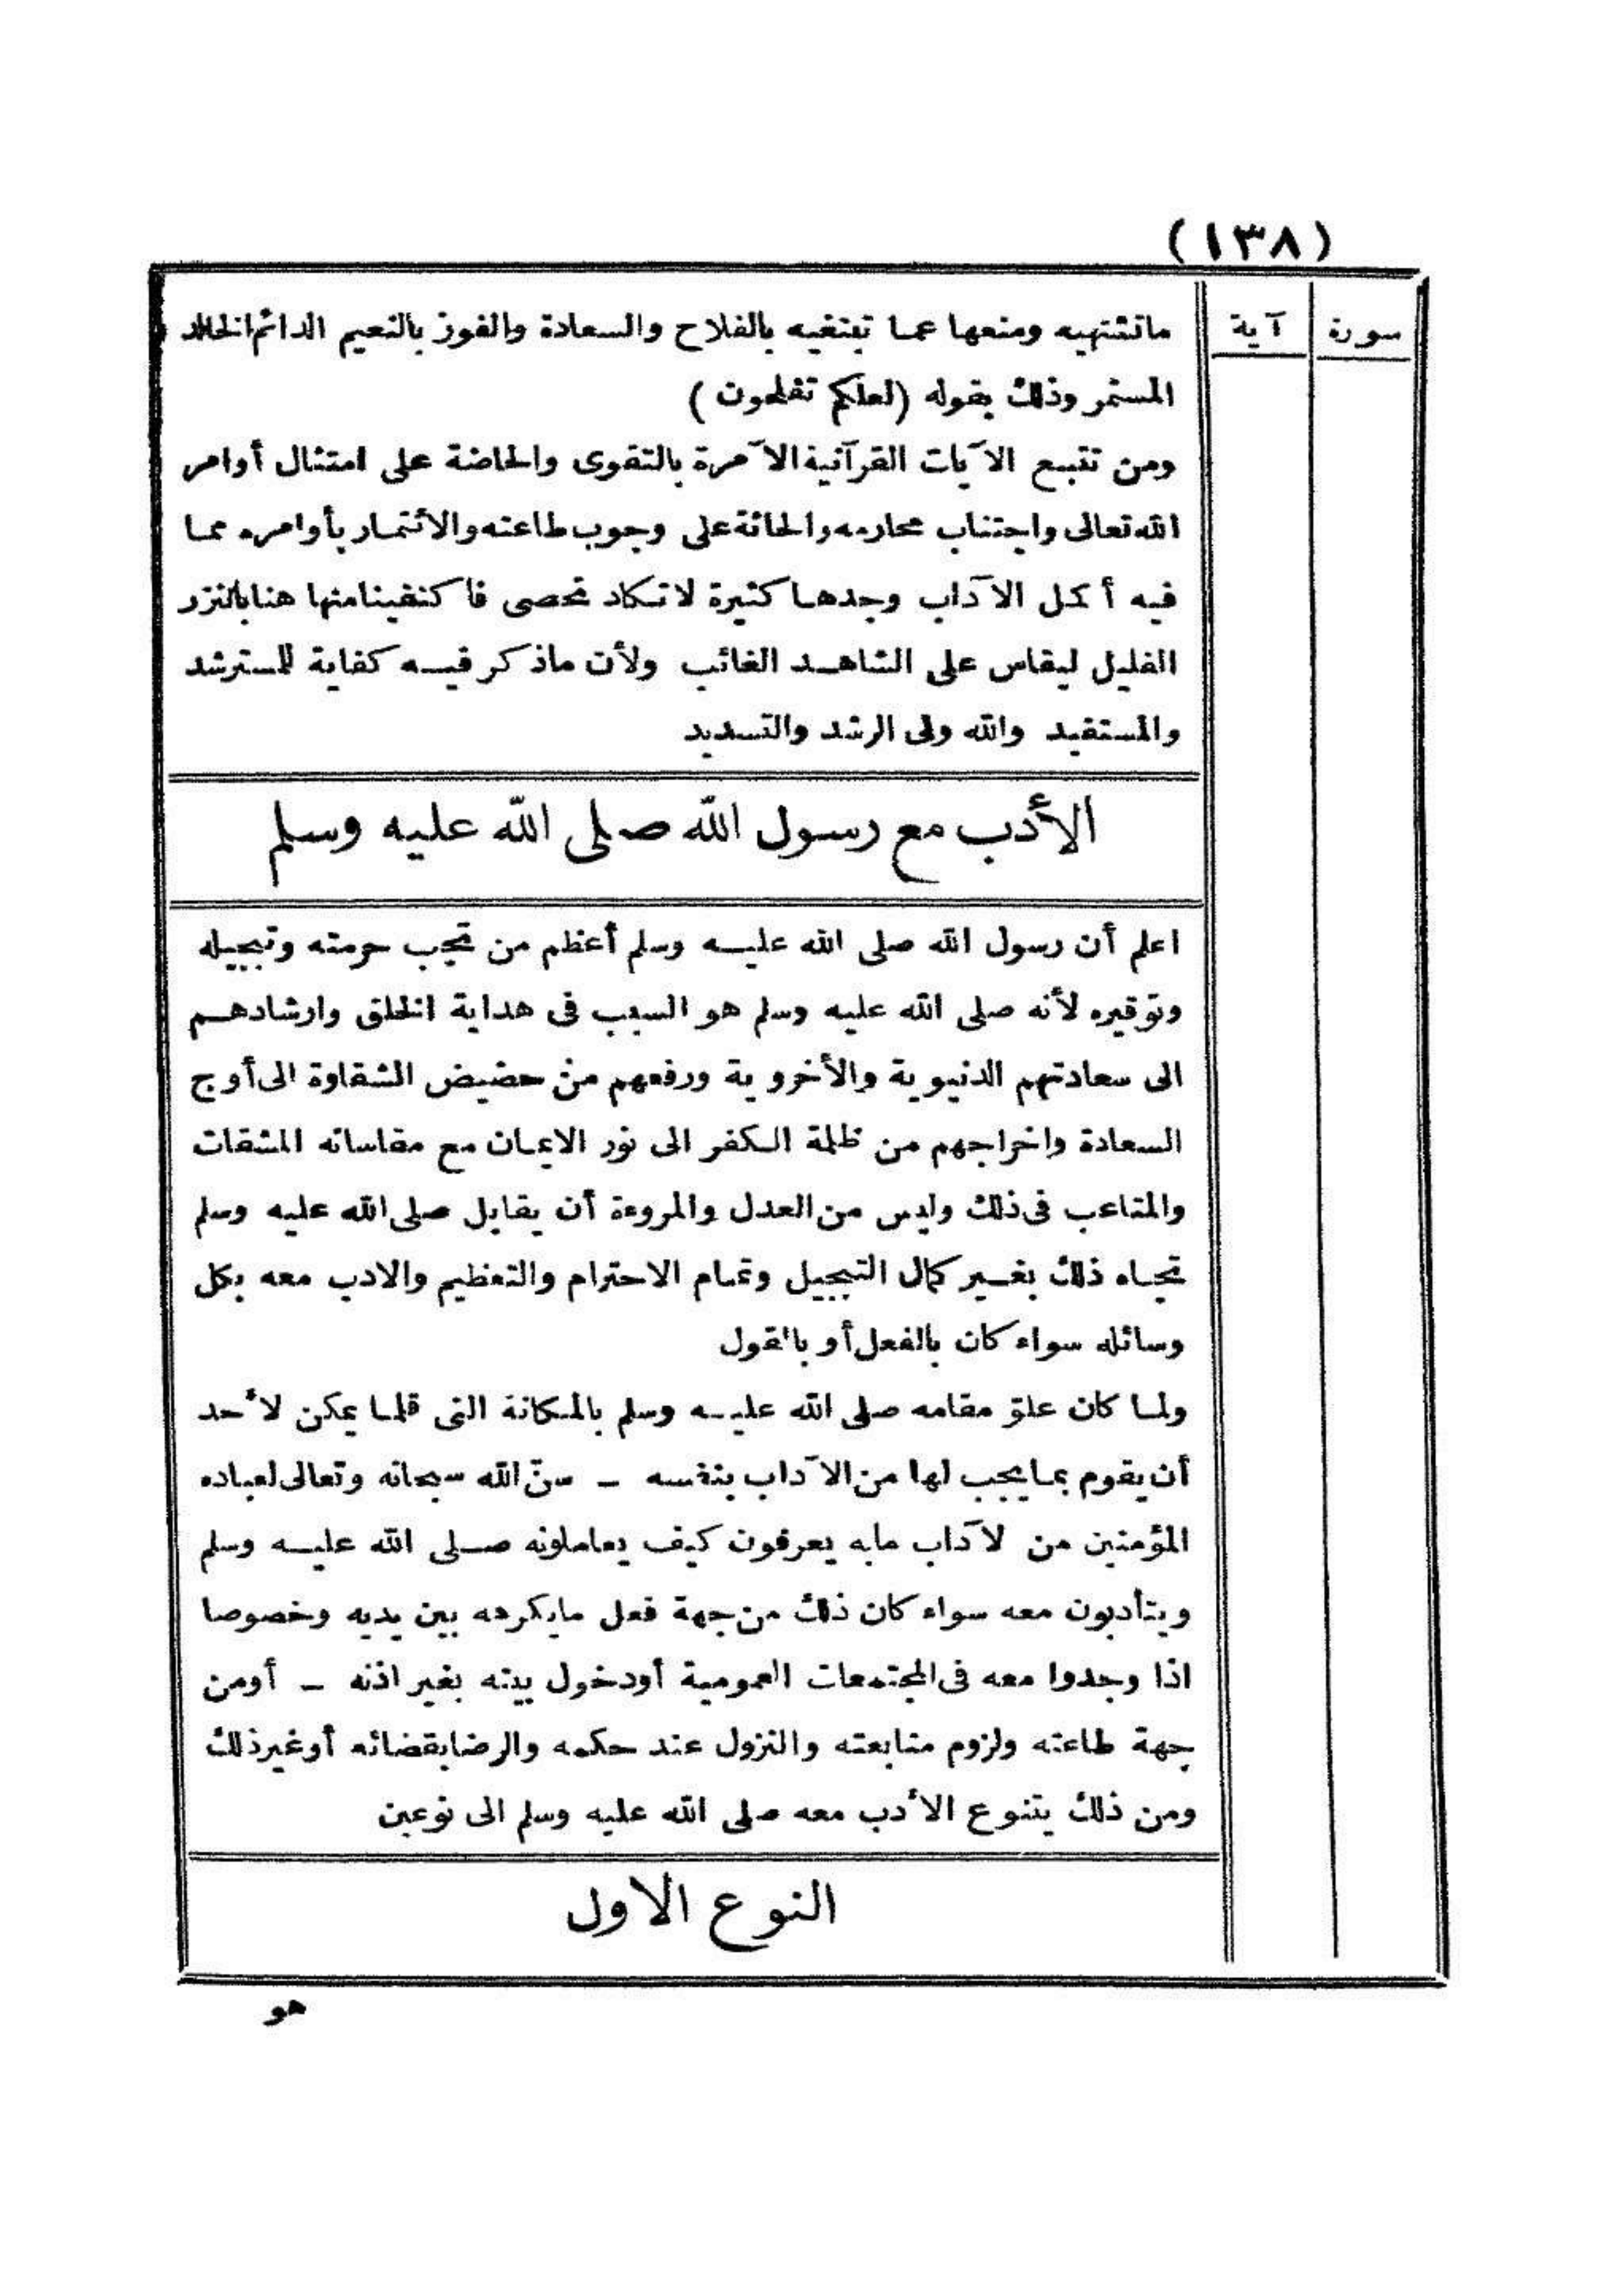 (١٣٨)
سورة آية
ماتشتهيه ومنعها عما تبتغيه بالفلاح والسعادة والفوز بالنعيم الدائم الخالد
المستمر وذلك بقوله (لعلكم تفلحون)
ومن تتبع الآيات القرآنية الآمرة بالتقوى والحاضة على امتثال أوامر
الله تعالى واجتناب محارمه والحاثة على وجوب طاعته والائتمار بأوامره مما
فيه أكمل الآداب وجدها كثيرة لاتكاد تحصى فاكتفينا منها هنا بالنزر
القليل ليقاس على الشاهد الغائب ولأن ماذكر فيه كفاية للمسترشد
والمستفيد والله ولى الرشد والتسديد
الأدب مع رسول الله صلى الله عليه وسلم
اعلم أن رسول الله صلى الله عليه وسلم أعظم من تجب حرمته وتبجيله
وتوقيره لأنه صلى الله عليه وسلم هو السبب فى هداية الخلق وارشادهم
الى سعادتهم الدنيوية والأخروية ورفعهم من حضيض الشقاوة الى أوج
السعادة واخراجهم من ظلمة الكفر الى نور الايمان مع مقاساته المشقات
والمتاعب فى ذلك وليس من العدل والمروءة أن يقابل صلى الله عليه وسلم
تجاه ذلك بغير كمال التبجيل وتمام الاحترام والتعظيم والادب معه بكل
وسائله سواء كان بالفعل أو بالقول
ولما كان علوّ مقامه صلى الله عليه وسلم بالمكانة التى قلما يمكن لأحد
أن يقوم بما يجب لها من الآداب بنفسه ـ سنّ الله سبحانه وتعالى لعباده
المؤمنين من لآداب مابه يعرفون كيف يعاملونه صلى الله عليه وسلم
ويتأدبون معه سواء كان ذلك من جهة فعل مايكرهه بين يديه وخصوصا
اذا وجدوا معه فى المجتمعات العمومية أودخول بيته بغير اذنه ـ أومن
جهة طاعته ولزوم متابعته والنزول عند حكمه والرضا بقضائه أوغير ذلك
ومن ذلك يتنوع الأدب معه صلى الله عليه وسلم الى نوعين
النوع الاول
هو